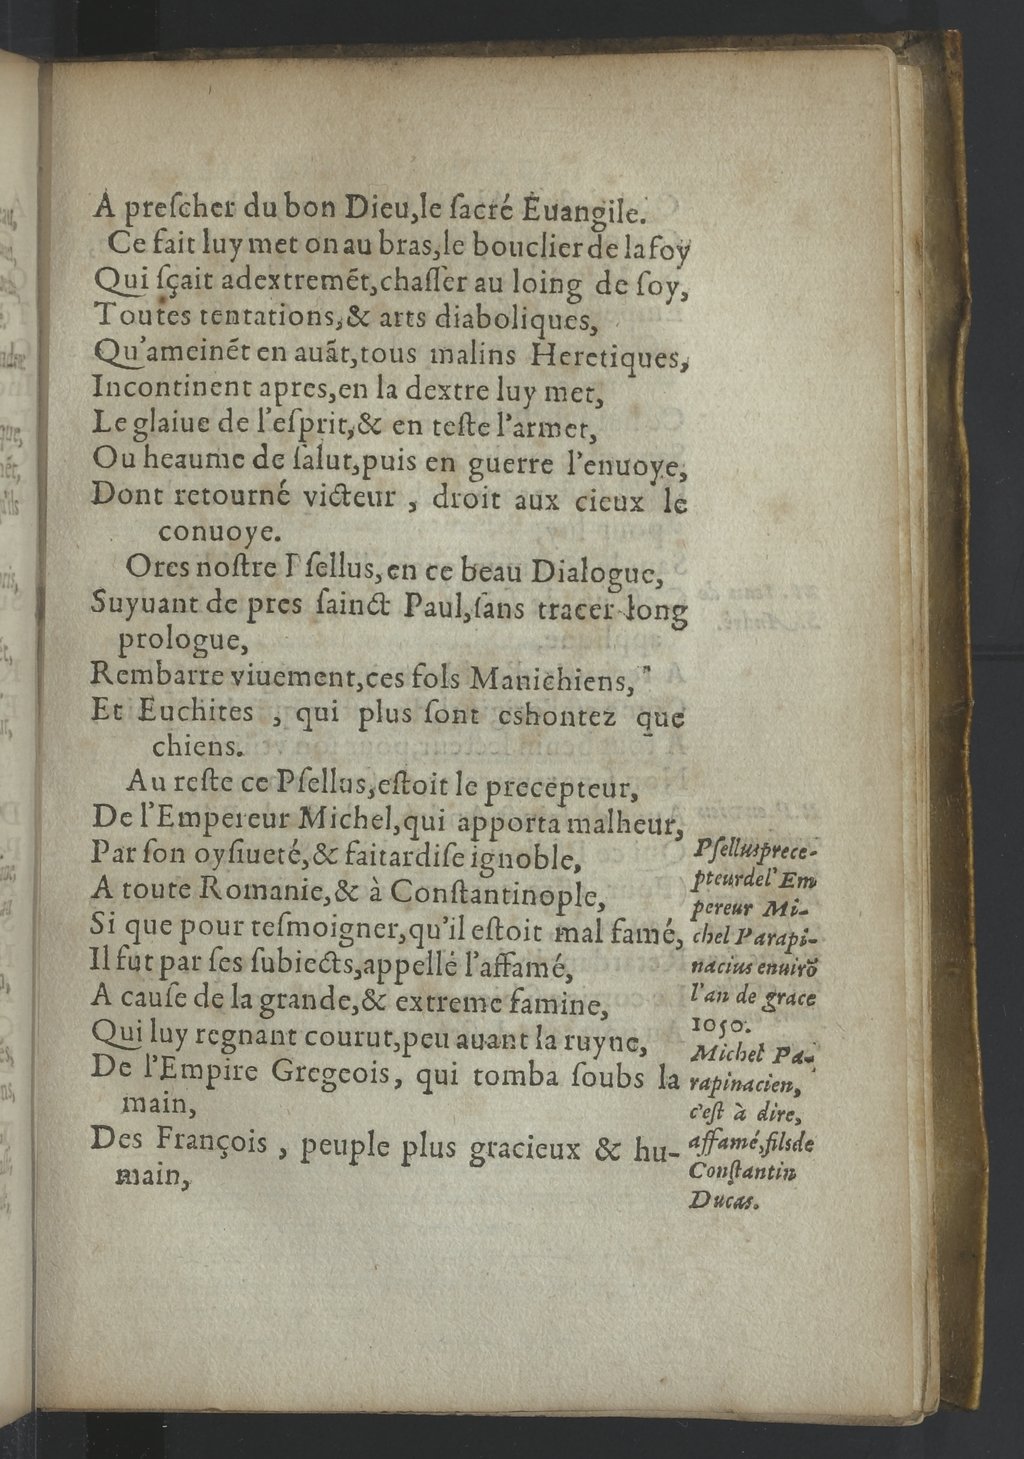 A preſcher du bon Dieu,le ſacré Euangile.
Ce fait luy met on au bras,le bouclier de la foy
Qui ſçait adextremét,chaſſer au loing de ſoy,
Toutes tentations,& arts diaboliques,
Qu'ameinét en auãt,tous malins Heretiques,
Incontinent apres,en la dextre luy met,
Le glaiue de l'eſprit,& en teſte l'armet,
Ou heaume de ſalut,puis en guerre l'enuoye,
Dont retourné victeur , droit aux cieux le
conuoye.
Ores noſtre Pſellus,en ce beau Dialogue,
Suyuant de pres ſainct Paul,ſans tracer long
prologue,
Rembarre viuement,ces fols Manichiens,
Et Euchites , qui plus ſont eshontez que
chiens.
Au reſte ce Pſellus,eſtoit le precepteur,
De l'Empereur Michel,qui apporta malheur,
Par ſon oyſiueté,& faitardiſe ignoble,
A toute Romanie,& à Conſtantinople,
Si que pour teſmoigner,qu'il eſtoit mal famé,
Il fut par ſes ſubiects,appellé l'affamé,
A cauſe de la grande,& extreme famine,
Qui luy regnant courut,peu auant la ruyne,
De l'Empire Gregeois, qui tomba ſoubs la
main,
Des François , peuple plus gracieux & hu-
main,
Pſellus prece-
pteur de l'Em
pereur Mi-
chel Parapi-
nacius enuirõ
l'an de grace
1050.
Michel Pa-
rapinacien,
c'eſt à dire,
affamé,fils de
Conſtantin
Ducas.